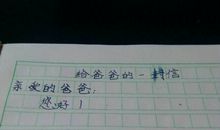 给爸爸的一封信
亲爱的爸爸：
您好！